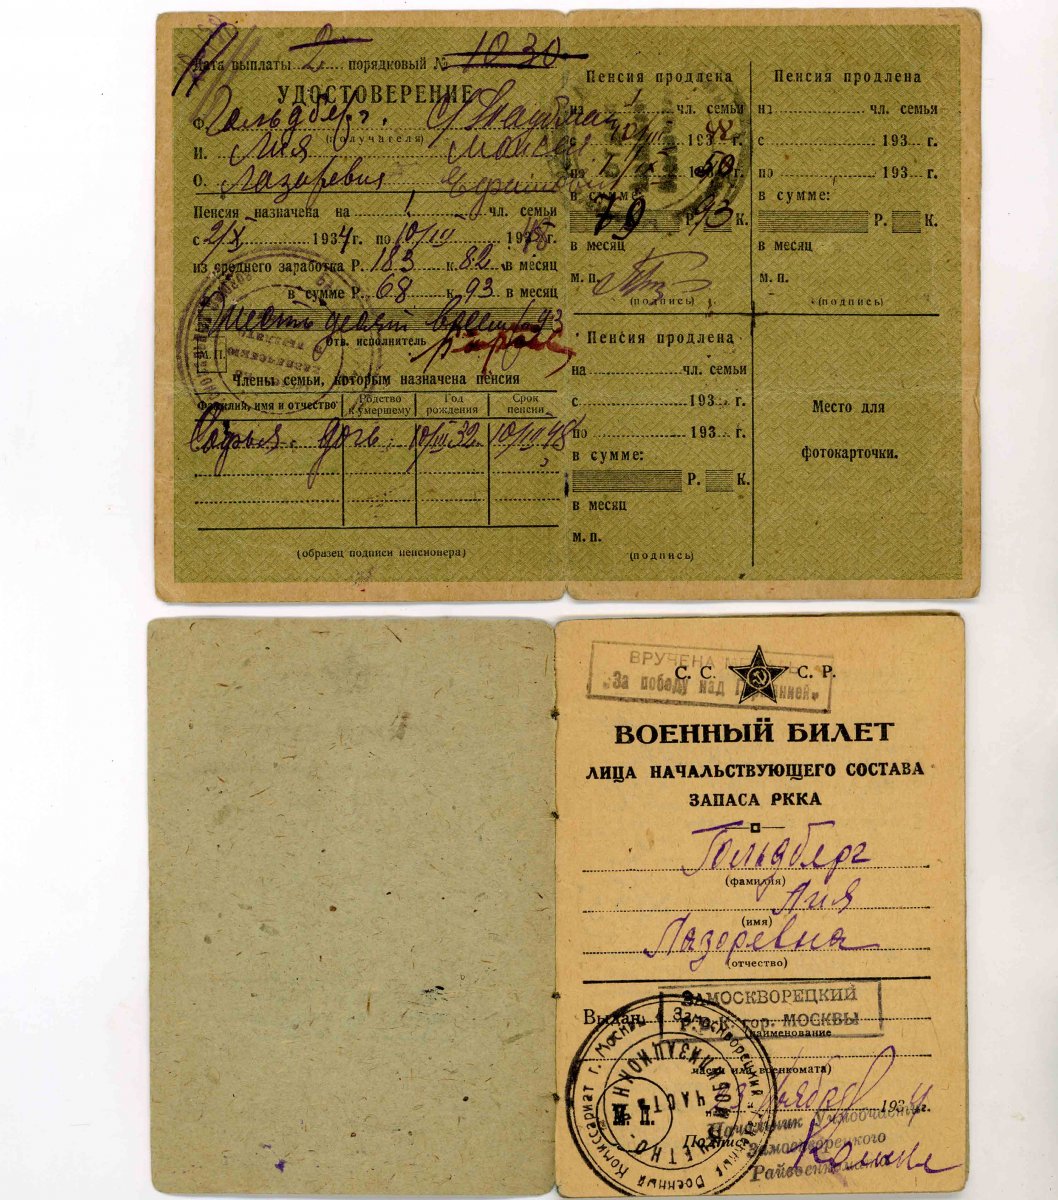 Дата выплаты 2 порядковый № 1030
УДОСТОВЕРЕНИЕ
Ф. Гольдберг.
(получателя)
И. Лия Моисея
О. Лазаревна
Пенсия назначена на 1 чл. семьи
с 2/X 1934 г. по 10/III 1948 г.
из среднего заработка Р. 183 к 82 в месяц
в сумме Р. 68 к. 93 в месяц
Шестьдесят восемь р. 93
Отв. исполнитель
М.П.
Члены семьи, которым назначена пенсия
Фамилия, имя и отчество Родство к умершему Год рождения Срок пенсии
Софья. дочь. 10/III 32 10/III 48
(образец подписи пенсионера)
Пенсия продлена
на 1 чл. семьи
с 10/III 1948 г.
по 1950 г.
в сумме:
79 Р. 93 К.
в месяц
м. п.
(подпись)
Пенсия продлена
на чл. семьи
с 193 г.
по 193 г.
в сумме:
Р. К.
в месяц
м. п.
(подпись)
Пенсия продлена
на чл. семьи
с 193 г.
по 193 г.
в сумме:
Р. К.
в месяц
м. п.
(подпись)
Место для
фотокарточки.
ВРУЧЕНА
„За победу над Германией"
С. С. С. Р.
ВОЕННЫЙ БИЛЕТ
ЛИЦА НАЧАЛЬСТВУЮЩЕГО СОСТАВА
ЗАПАСА РККА
Гольдберг
(фамилия)
Лия
(имя)
Лазаревна
(отчество)
ЗАМОСКВОРЕЦКИЙ
Выдан Р.В.К. гор. МОСКВЫ
(наименование
части или военкомата)
ноября 1934 г.
Подпись
Начальник Учмобчасти
Замоскворецкого
Райвоенкомата
Замоскворецкий Районный Военный Комиссариат г. Москвы
УЧЕТНО-МОБИЛИЗАЦИОННАЯ
ЧАСТЬ
М. П.